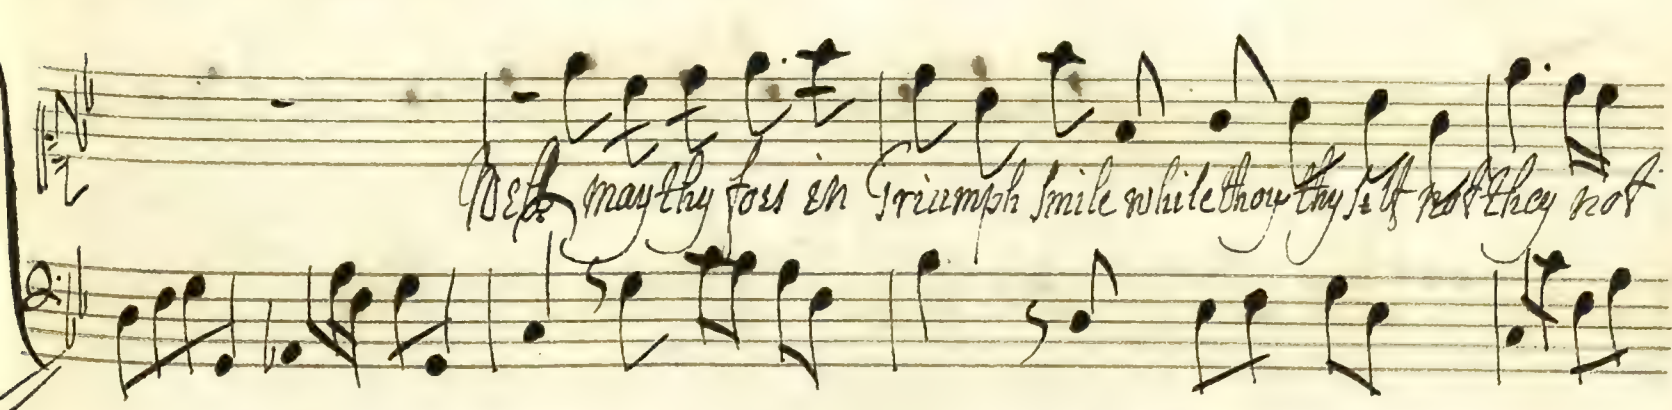 Well may thy foes in Triumph smile while thou thy self not they not